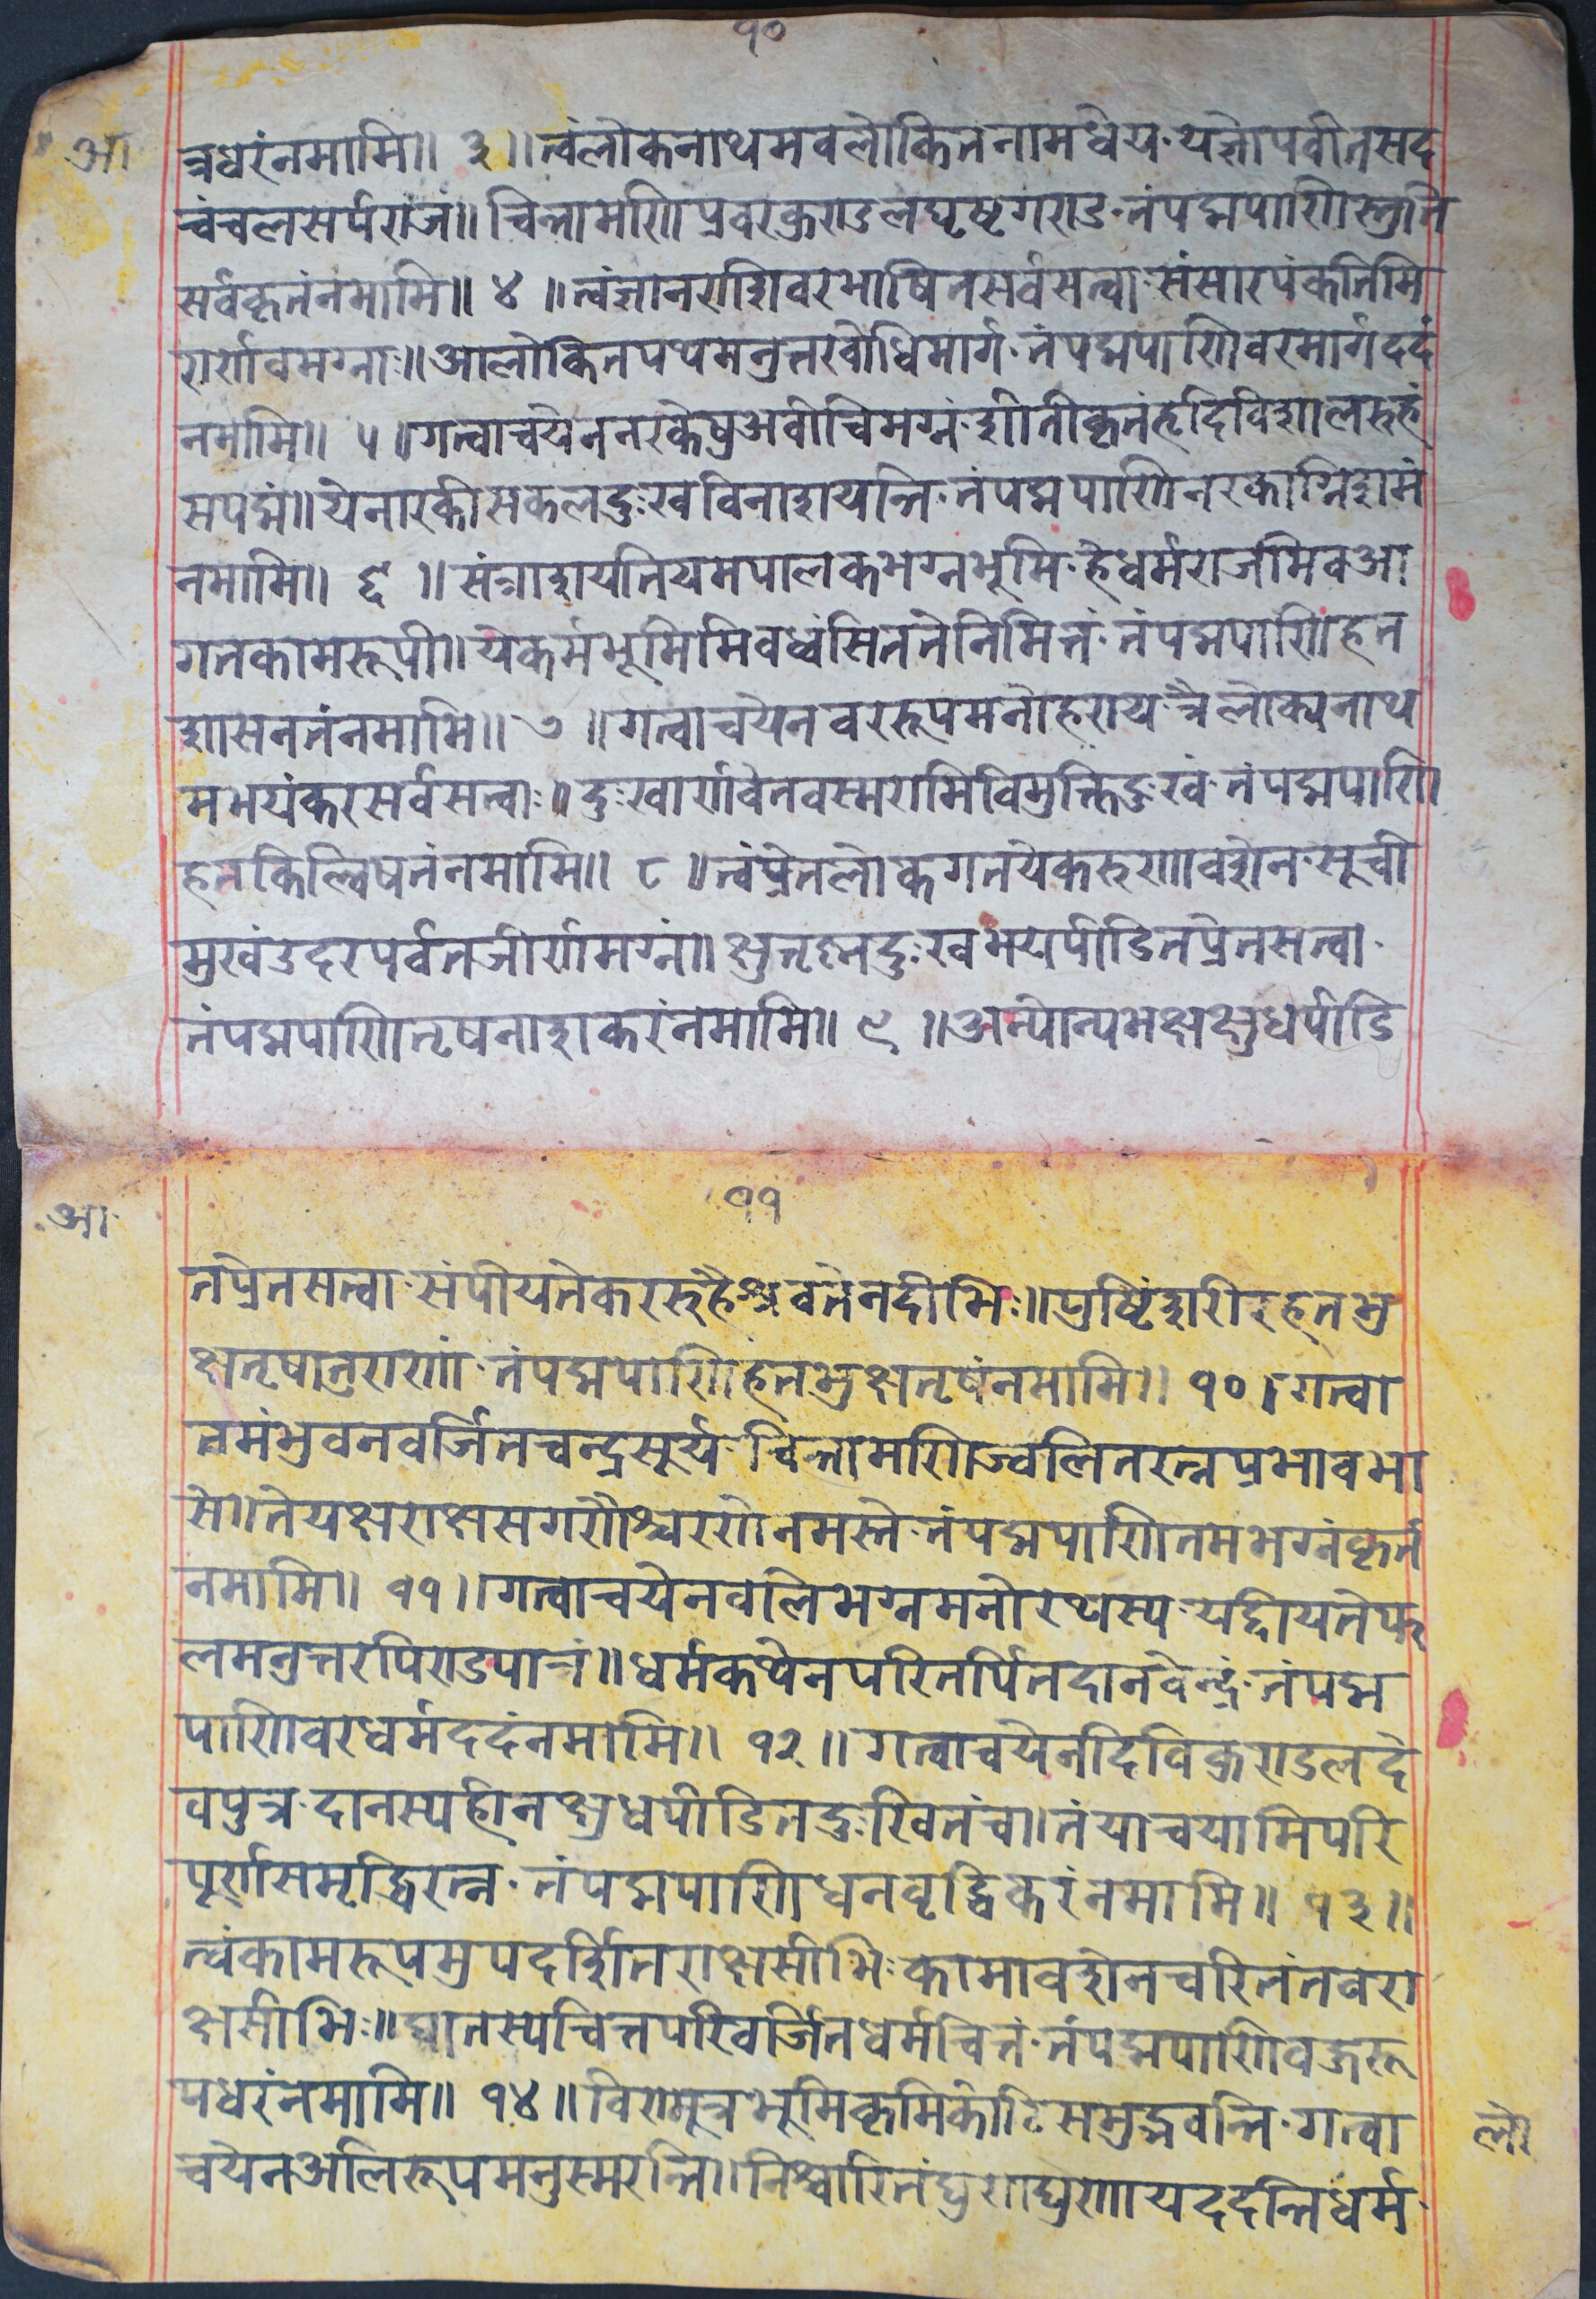 १०
आ
त्रधरंनमामि॥ ३॥त्वंलोकनाथमवलोकितनामधेय·यज्ञोपवीतसद
चंचलसर्पराजं॥चिन्तामणिप्रवरकुण्डलघृष्टगण्ड·तंपद्मपाणिस्तुति
सर्वकृतंनमामि॥ ४ ॥त्वंज्ञानराशिवरभाषितसर्वसत्वा·संसारपंकतिमि
रार्णवमग्नाः॥आलोकितपथमनुत्तरबोधिमार्ग·तंपद्मपाणिवरमार्गददं
नमामि॥ ५ ॥गत्वाचयेननरकेषुअवीचिमग्नं·शीतीकृतंहृदिविशालरुहं
सपद्मं॥येनारकीसकलदुःखविनाशयन्ति·तंपद्मपाणिनरकाग्निशमं
नमामि॥ ६ ॥संत्राशयतियमपालकभग्नभूमि·हेधर्मराजमिवआ
गतकामरूपी॥येकर्मभूमिमिवध्वंसिततेनिमित्तं·तंपद्मपाणिहत
शासनतंनमामि॥ ७ ॥गत्वाचयेनवररूपमनोहराय·त्रैलोक्यनाथ
मभयंकरसर्वसत्वाः॥दुःखार्णवेतवस्मरामिविमुक्तिदुःखं·तंपद्मपाणि
हतकिल्विषतंनमामि॥ ८ ॥त्वंप्रेतलोकगतयेकरुणावशेन·सूची
मुखंउदरपर्वतजीर्णमग्नं॥क्षुतृष्णदुःखभयपीडितप्रेतसत्वा·
तंपद्मपाणितृषनाशकरंनमामि॥ ९ ॥अन्योन्यभक्षक्षुधपीडि
११
आ
तप्रेतसत्वा·संपीयतेकररुहैश्रवतेनदीभिः॥पुष्टिंशरीरहतभु
क्षतृषातुराणां·तंपद्मपाणिहतभुक्षतृषंनमामि॥ १०॥गत्वा
तमंभुवनवर्जितचन्द्रसूर्य·चिन्तामणिज्वलितरत्नप्रभावभा
से॥तेयक्षराक्षसगणैश्चरणेनमस्ते·तंपद्मपाणितमभग्नंकृतं
नमामि॥ ११॥गत्वाचयेनवलिभग्नमनोरथस्य·यद्दीयतेफ
लमनुत्तरपिण्डपात्रं॥धर्मकथेनपरितर्पितदानवेन्द्रं·तंपद्म
पाणिवरधर्मददंनमामि॥ १२॥गत्वाचयेनदिविकुण्डलदे
वपुत्र·दानस्यहीनक्षुधपीडितदुःखितंच॥तंयाचयामिपरि
पूर्णसमृद्धिरत्न·तंपद्मपाणिधनवृद्धिकरंनमामि॥ १३॥
त्वंकामरूपमुपदर्शितराक्षसीभि·कामावशेनचरितंतवरा
क्षसीभिः॥घातस्यचित्तपरिवर्जितधर्मचित्तं·तंपद्मपाणिवज्ररू
पधरंनमामि॥ १४॥विण्मूत्रभूमिकृमिकोटिसमुद्भवन्ति·गत्वा
चयेनअलिरूपमनुस्मरन्ति॥निश्चारितंघुणघुणायददन्तिधर्म·
ले